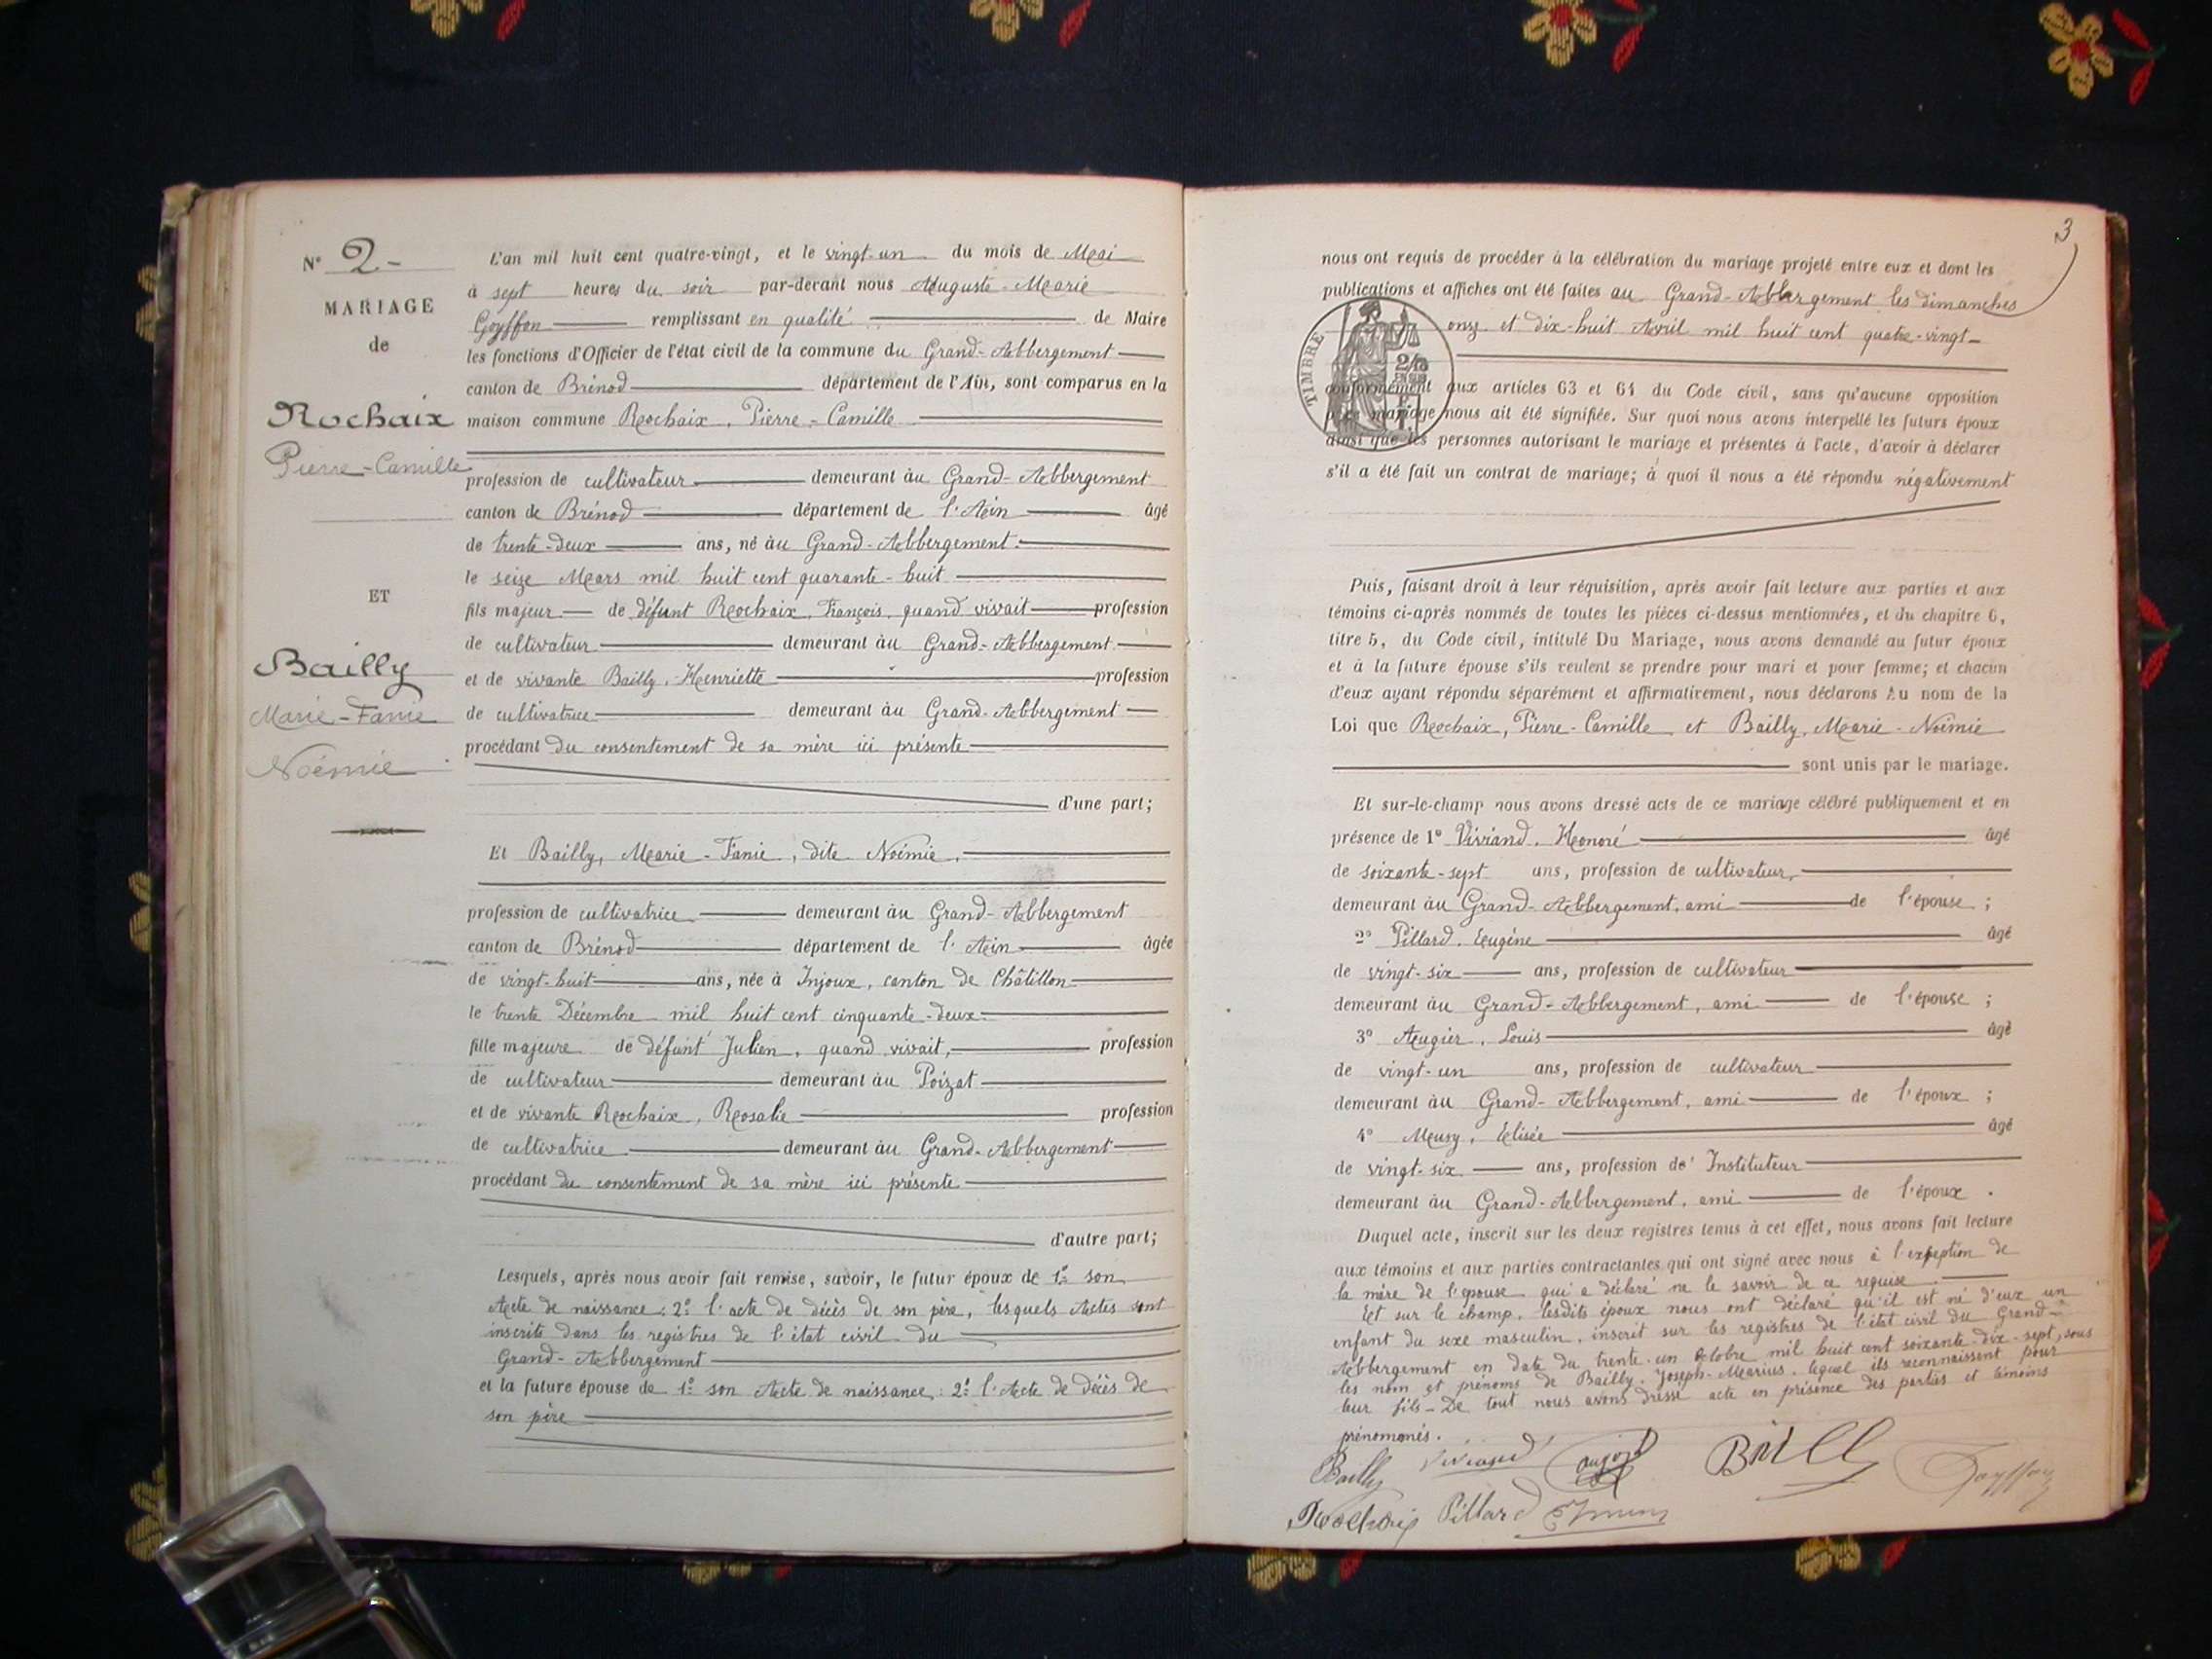 N° 2.-
MARIAGE
de
Rochaix
Pierre-Camille
ET
Bailly
Marie-Fanie
Noémie
L'an mil huit cent quatre-vingt, et le vingt-un du mois de Mai
à sept heures du soir par-devant nous Auguste-Marie
Goyffon remplissant en qualité de Maire
les fonctions d'Officier de l'état civil de la commune du Grand-Abbergement
canton de Brénod département de l'Ain, sont comparus en la
maison commune Rochaix, Pierre-Camille
profession de cultivateur demeurant àu Grand-Abbergement
canton de Brénod département de l'Ain âgé
de trente-deux ans, né àu Grand-Abbergement.
le seize Mars mil huit cent quarante-huit
fils majeur de défunt Rochaix, François, quand vivait profession
de cultivateur demeurant àu Grand-Abbergement
et de vivante Bailly, Henriette profession
de cultivatrice demeurant àu Grand-Abbergement
procédant du consentement de sa mère ici présente
d'une part;
Et Bailly, Marie-Fanie, dite Noémie,
profession de cultivatrice demeurant àu Grand-Abbergement
canton de Brénod département de l'Ain âgée
de vingt-huit ans, née à Injoux, canton de Châtillon
le trente Décembre mil huit cent cinquante-deux.
fille majeure de défunt Julien, quand vivait, profession
de cultivateur demeurant àu Poizat
et de vivante Rochaix, Rosalie profession
de cultivatrice demeurant àu Grand-Abbergement
procédant du consentement de sa mère ici présente
d'autre part;
Lesquels, après nous avoir fait remise, savoir, le futur époux de 1° son
Acte de naissance: 2° l'acte de décès de son père, lesquels Actes sont
inscrits dans les registres de l'état civil du
Grand-Abbergement
et la future épouse de 1° son Acte de naissance: 2° l'Acte de décès de
son père
3
nous ont requis de procéder à la célébration du mariage projeté entre eux et dont les
publications et affiches ont été faites au Grand-Abbergement les dimanches
onze et dix-huit Avril mil huit cent quatre-vingt
TIMBRE
conformément aux articles 63 et 64 du Code civil, sans qu'aucune opposition
à ce mariage nous ait été signifiée. Sur quoi nous avons interpellé les futurs époux
ainsi que les personnes autorisant le mariage et présentes à l'acte, d'avoir à déclarer
s'il a été fait un contrat de mariage; à quoi il nous a été répondu négativement
Puis, faisant droit à leur réquisition, après avoir fait lecture aux parties et aux
témoins ci-après nommés de toutes les pièces ci-dessus mentionnées, et du chapitre 6,
titre 5, du Code civil, intitulé Du Mariage, nous avons demandé au futur époux
et à la future épouse s'ils veulent se prendre pour mari et pour femme; et chacun
d'eux ayant répondu séparément et affirmativement, nous déclarons Au nom de la
Loi que Rochaix, Pierre-Camille et Bailly, Marie-Noémie
sont unis par le mariage.
Et sur-le-champ nous avons dressé acte de ce mariage célébré publiquement et en
présence de 1° Viviand, Honoré âgé
de soixante-sept ans, profession de cultivateur,
demeurant àu Grand-Abbergement, ami de l'épouse;
2° Pillard, Eugène âgé
de vingt-six ans, profession de cultivateur
demeurant àu Grand-Abbergement, ami de l'épouse;
3° Augier, Louis âgé
de vingt-un ans, profession de cultivateur
demeurant àu Grand-Abbergement, ami de l'époux;
4° Meusy, Elisée âgé
de vingt-six ans, profession de Instituteur
demeurant àu Grand-Abbergement, ami de l'époux.
Duquel acte, inscrit sur les deux registres tenus à cet effet, nous avons fait lecture
aux témoins et aux parties contractantes qui ont signé avec nous à l'exception de
la mère de l'épouse qui a déclaré ne le savoir de ce requise.
Et sur le champ, lesdits époux nous ont déclaré qu'il est né d'eux un
enfant du sexe masculin, inscrit sur les registres de l'état civil du Grand-
Abbergement en date du trente-un octobre mil huit cent soixante-dix-sept, sous
les nom et prénoms de Bailly, Joseph-Marius, lequel ils reconnaissent pour
leur fils - De tout nous avons dressé acte en présence des parties et témoins
prénommés.
Bailly Viviand Goyffon
Rochaix Pillard